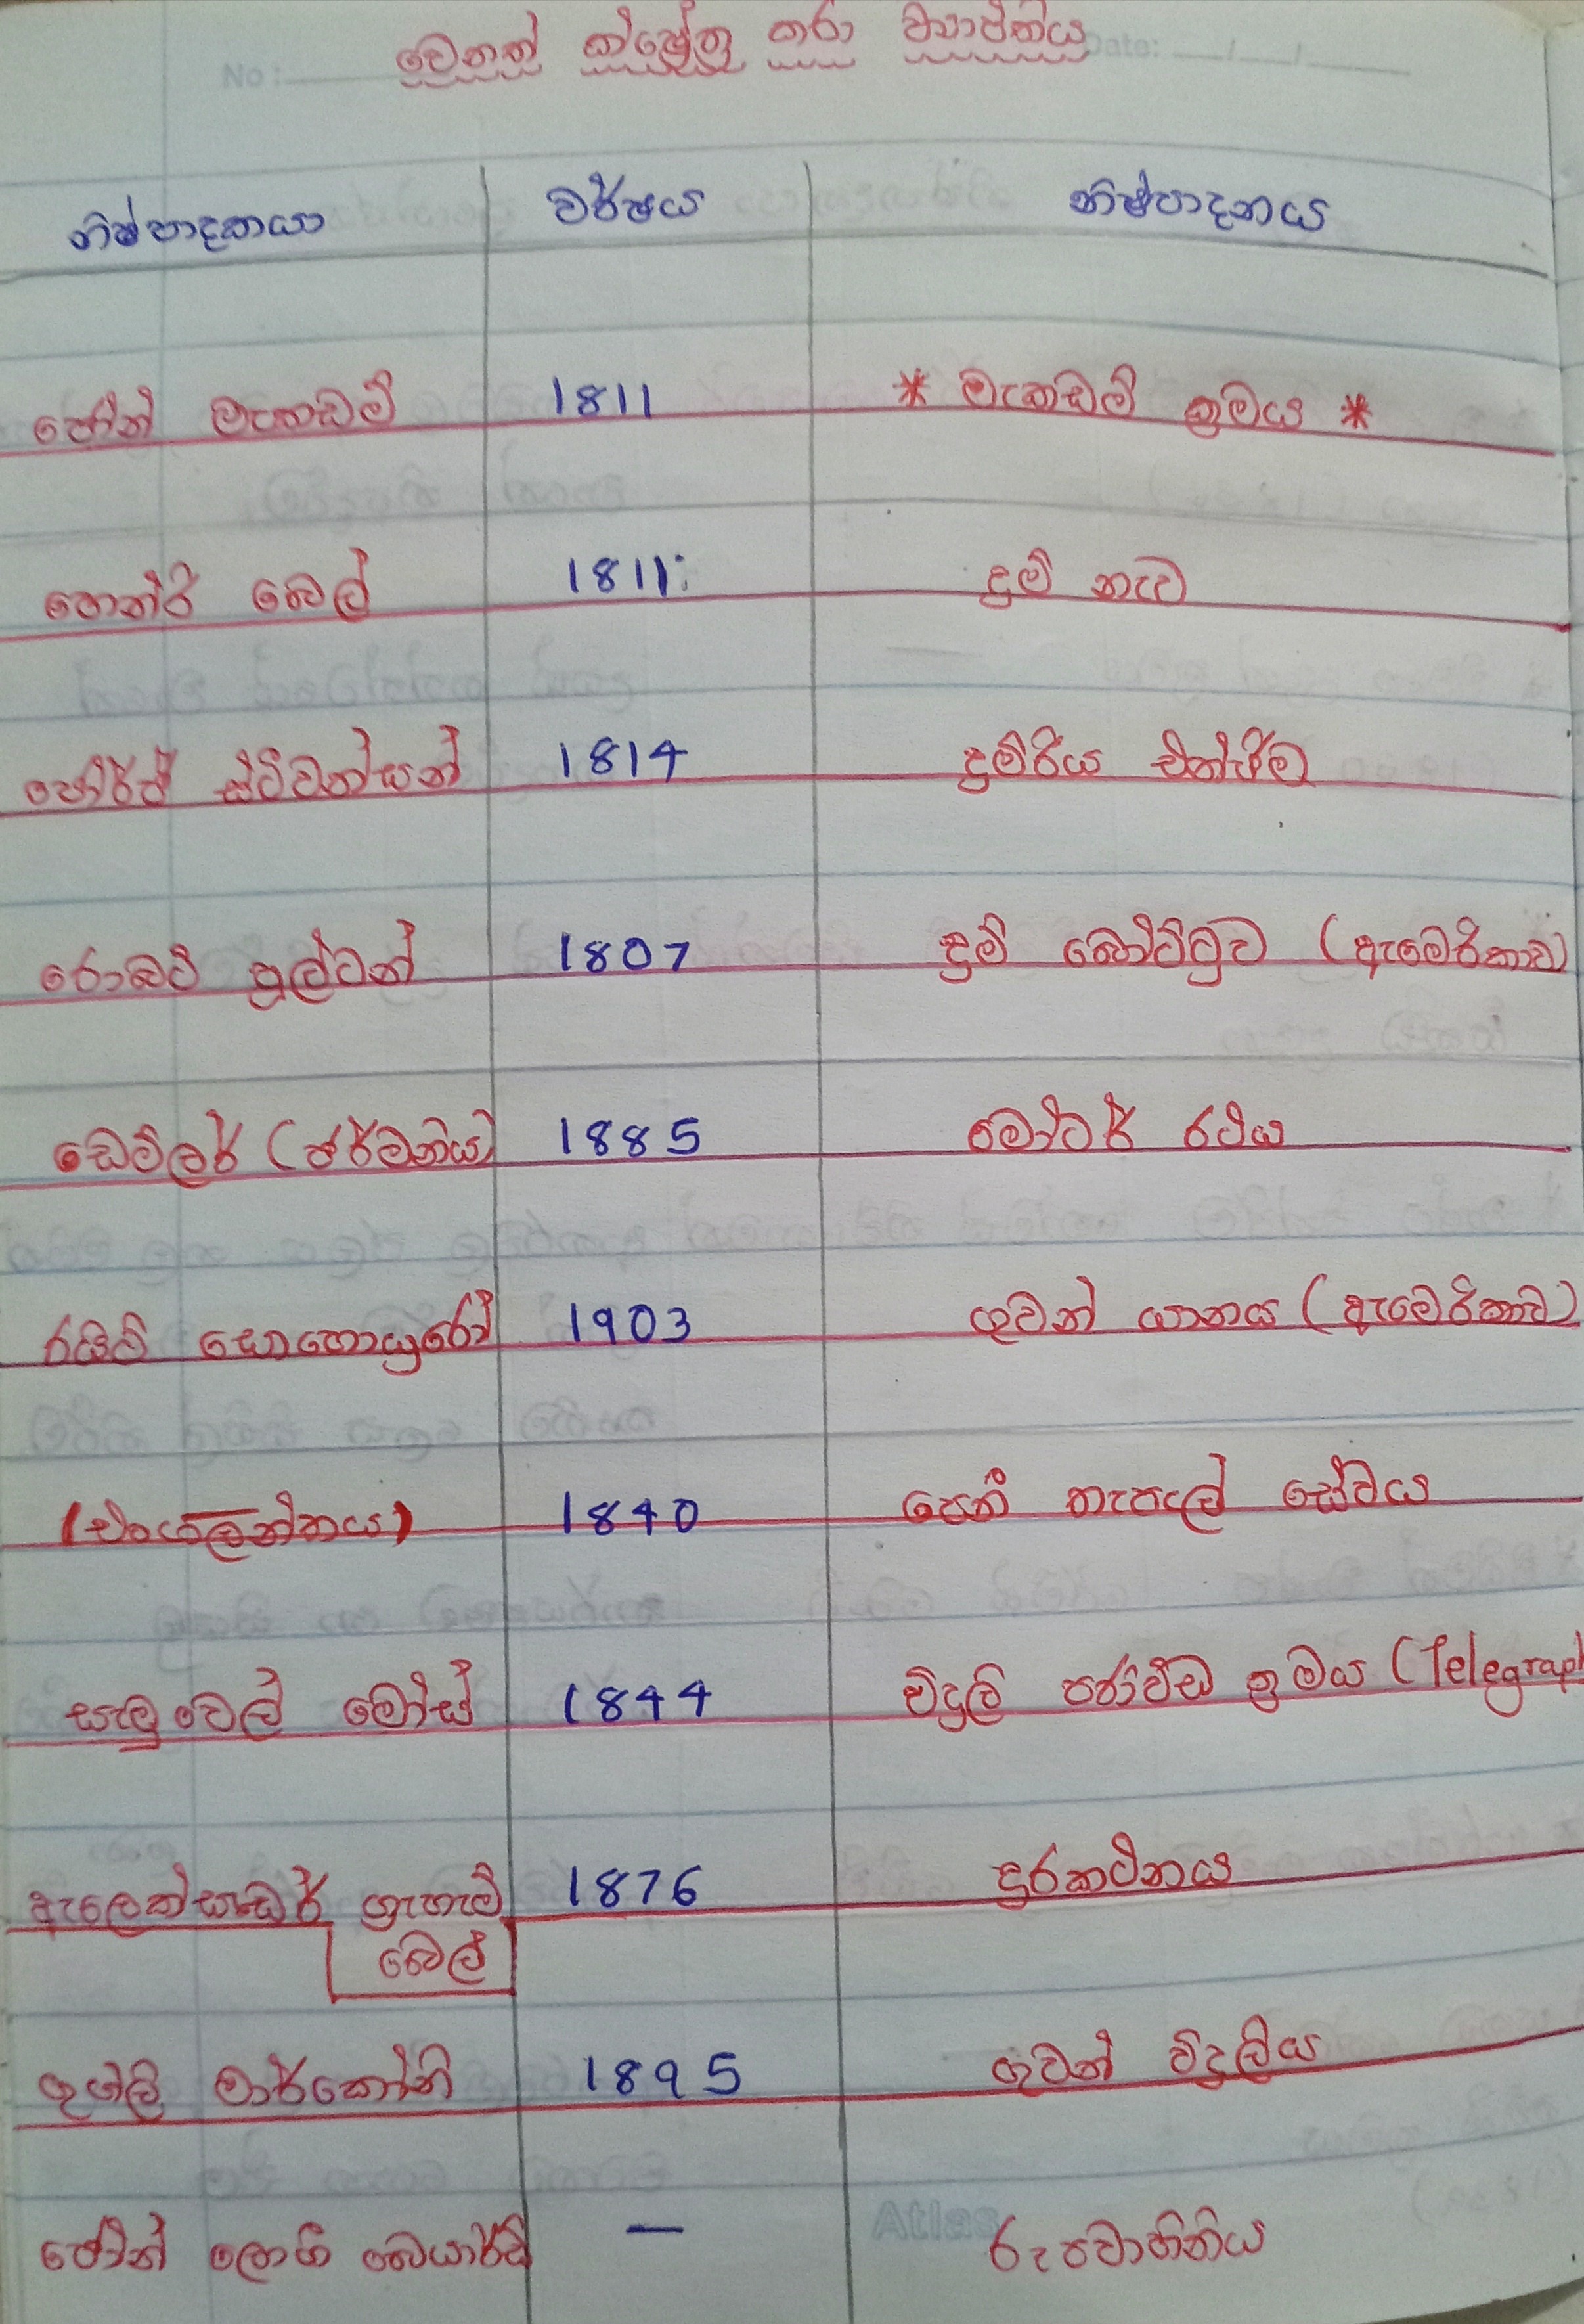 වෙනත් ක්ෂේත්‍ර කරා ව්‍යාප්තිය
No : Date: / /
නිෂ්පාදකයා වර්ෂය නිෂ්පාදනය
ජෝන් මැකඩම් 1811 * මැකඩම් ක්‍රමය *
හෙන්රි බෙල් 1811 දුම් නැව
ජෝර්ජ් ස්ටීවන්සන් 1814 දුම්රිය එන්ජිම
රොබට් ෆුල්ටන් 1807 දුම් බෝට්ටුව (ඇමෙරිකාව)
ඩෙම්ලර් (ජර්මනිය) 1885 මෝටර් රථය
රයිට් සොහොයුරෝ 1903 ගුවන් යානය (ඇමෙරිකාව)
(එංගලන්තය) 1840 පෙනී තැපැල් සේවය
සැමුවෙල් මෝස් 1844 විදුලි පණිවිඩ ක්‍රමය (Telegraph
ඇලෙක්සැන්ඩර් ග්‍රැහැම් 1876 දුරකථනය
බෙල්
ගුග්ලි මාර්කෝනි 1895 ගුවන් විදුලිය
ජෝන් ලොගි බෙයාර්ඩ් — රූපවාහිනිය
Atlas